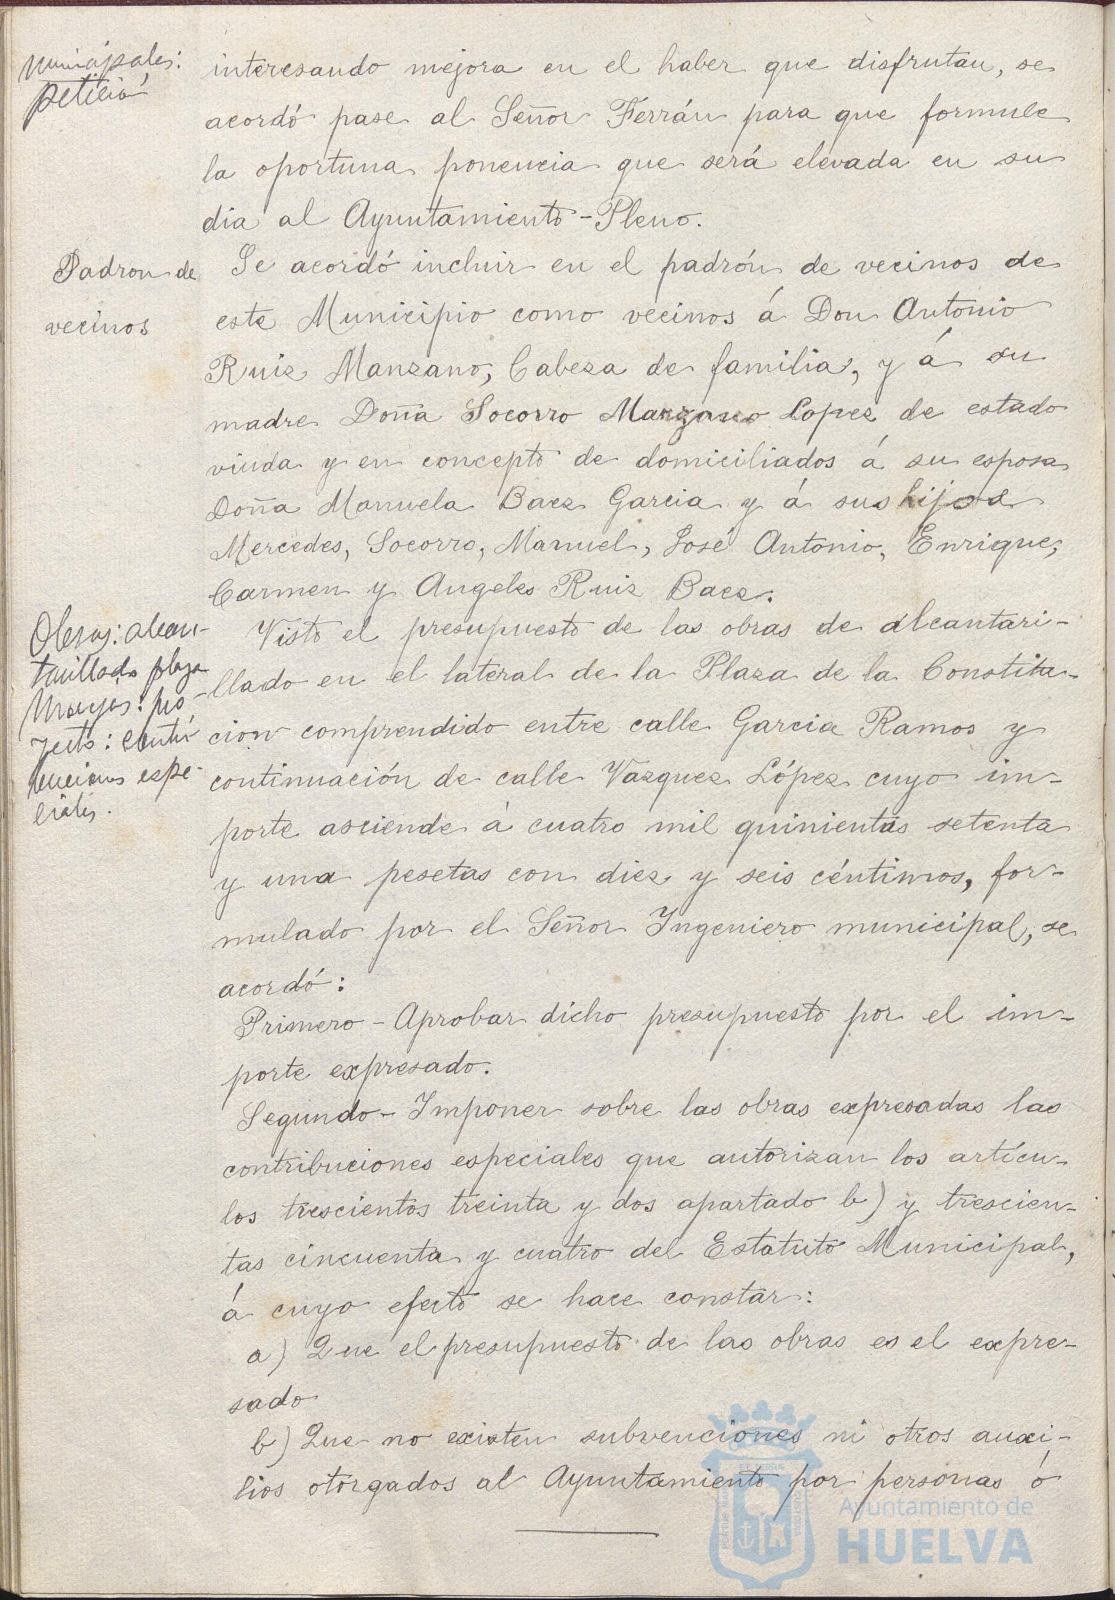 municipales:
petición
interesando mejora en el haber que disfrutan, se
acordó pase al Señor Ferrán para que formule
la oportuna ponencia que será elevada en su
dia al Ayuntamiento-Pleno.
Padron de
vecinos
Se acordó incluir en el padrón de vecinos de
este Municipio como vecinos á Don Antonio
Ruiz Manzano, Cabeza de familia, y á su
madre Doña Socorro Manzano Lopez de estado
viuda y en concepto de domiciliados á su esposa
Doña Manuela Baez Garcia y á sus hijos
Mercedes, Socorro, Manuel, José Antonio, Enrique,
Carmen y Angeles Ruiz Baez.
Obras: alcan-
tarillado plaza
Monjas: pro-
yecto: contri-
buciones espe-
ciales.
Visto el presupuesto de las obras de alcantari-
llado en el lateral de la Plaza de la Constitu-
cion comprendido entre calle Garcia Ramos y
continuación de calle Vazquez López cuyo im-
porte asciende á cuatro mil quinientas setenta
y una pesetas con diez y seis céntimos, for-
mulado por el Señor Ingeniero municipal, se
acordó:
Primero - Aprobar dicho presupuesto por el im-
porte expresado.
Segundo - Imponer sobre las obras expresadas las
contribuciones especiales que autorizan los artícu-
los trescientos treinta y dos apartado b) y trescien-
tas cincuenta y cuatro del Estatuto Municipal,
á cuyo efecto se hace constar:
a) Que el presupuesto de las obras es el expre-
sado
b) Que no existen subvenciones ni otros auxi-
lios otorgados al Ayuntamiento por personas ó
Ayuntamiento de
HUELVA